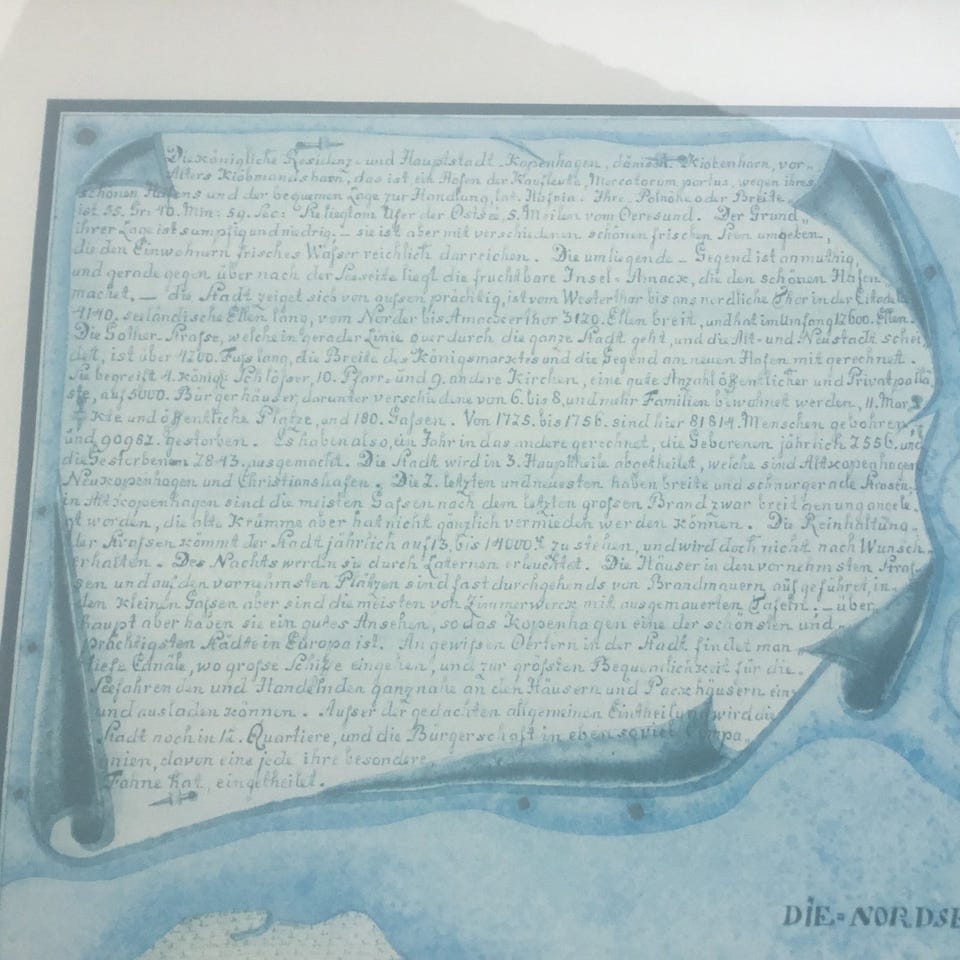 Die königliche Residenz- und Hauptstadt Kopenhagen, dänisch Kiobenhavn, vor-
Alters Kiöbmandshavn, das ist ein Hafen der Kaufleute, Mercatorum portus, wegen ihres
schönen Hafens und der bequemen Lage zur Handlung, lat. Hafnia. Ihre Polhöhe oder Breite
ist 55. Gr: 40. Min: 59. Sec: Sie liegt am Ufer der Ostsee, 5. Meilen vom Oeresund. Der Grund
ihrer Lage ist sumpfig und niedrig. — sie ist aber mit verschiedenen schönen frischen Seen umgeben,
die den Einwohnern frisches Wasser reichlich darreichen. Die umliegende - Gegend ist anmuthig,
und gerade gegen über nach der Seeseite liegt die fruchtbare Insel - Amack, die den schönen Hafen
machet. — die Stadt zeiget sich von aussen prächtig, ist vom Westerthor bis ans nordliche Thor in der Citadelle
4140. seeländische Ellen lang, vom Norder bis Amackerthor 3120. Ellen breit, und hat im Umfang 12600. Ellen.
Die Gother-Strasse, welche in gerader Linie quer durch die ganze Stadt geht, und die Alt- und Neustadt schei
det, ist über 4200. Fuss lang, die Breite des Königsmarktes und die Gegend am neuen Hafen mit gerechnet.
Sie begreift 4. königl: Schlösser, 10. Pfarr- und 9. andere Kirchen, eine gute Anzahl öffentlicher und Privatpallä
ste, auf 5000. Bürgerhäuser, darunter verschiedene von 6. bis 8. und mehr Familien bewohnet werden, 11. Mar
kte und öffentliche Plätze, und 180. Gassen. Von 1725. bis 1756. sind hier 81814. Menschen gebohren
und 90982. gestorben. Es haben also, ein Jahr in das andere gerechnet, die Geborenen jährlich 2556. und
die Gestorbenen 2843. ausgemacht. Die Stadt wird in 3. Haupttheile abgetheilet, welche sind Altkopenhagen
Neukopenhagen und Christianshafen. Die 2. letzten und neuesten haben breite und schnurgerade Strasen:
in Altkopenhagen sind die meisten Gassen nach dem letzten grossen Brand zwar breit genung angele.
gt worden, die alte Krümme aber hat nicht gänzlich vermieden werden können. Die Reinhaltung
der Strassen kömmt der Stadt jährlich auf 13. bis 14000 zu stehen, und wird doch nicht nach Wunsch
erhalten. Des Nachts werdn sie durch Laternen erleuchtet. Die Häuser in den vornehmsten Stras
sen und auf den vornehmsten Plätzen sind fast durchgehends von Brandmauern aufgeführet, in
den kleinen Gassen aber sind die meisten von Zimmerwerck mit ausgemauerten Tafeln. — über
haupt aber haben sie ein gutes Ansehen, so das Kopenhagen eine der schönsten und
prächtigsten Städte in Europa ist. An gewissen Oertern in der Stadt findet man
tiefe Canäle, wo grosse Schiffe eingehen, und zur grösten Bequemlichkeit für die
Seefahrenden und Handelnden ganz nahe an den Häusern und Packhäusern ein
und ausladen können. Ausser der gedachten allgemeinen Eintheilung wird die
Stadt noch in 12. Quartiere, und die Bürgerschaft in eben soviel Compa
gnien, davon eine jede ihre besondere
Fahne hat, eingetheilet.
DIE=NORDSE